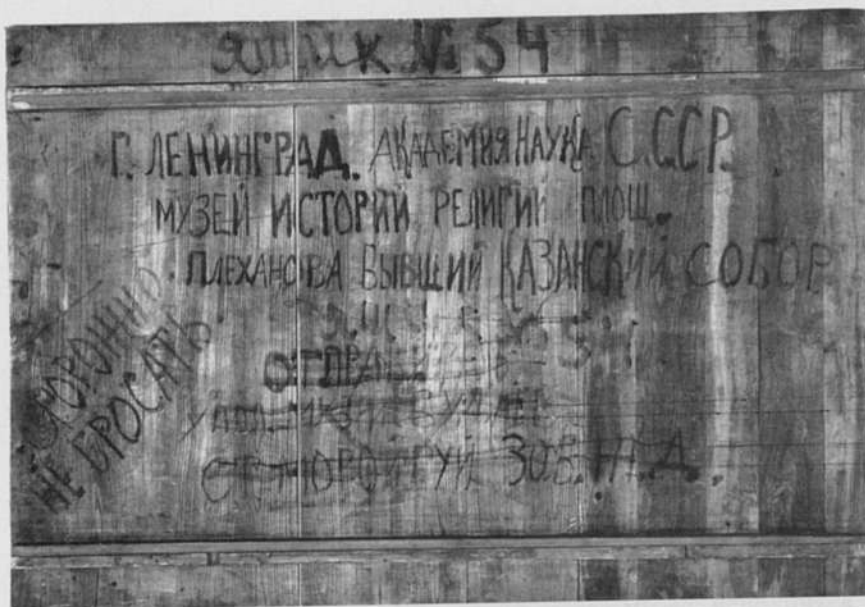 ящик № 54
Г. ЛЕНИНГРАД. АКАДЕМИЯ НАУКА С.С.С.Р.
МУЗЕЙ ИСТОРИЙ РЕЛИГИИ ПЛОЩ.
ПЛЕХАНОВА БЫВЩИЙ КАЗАНСКИЙ СОБОР
54
З.О.В. Ж.Д.
ОСТОРОЖНО
НЕ БРОСАТЬ